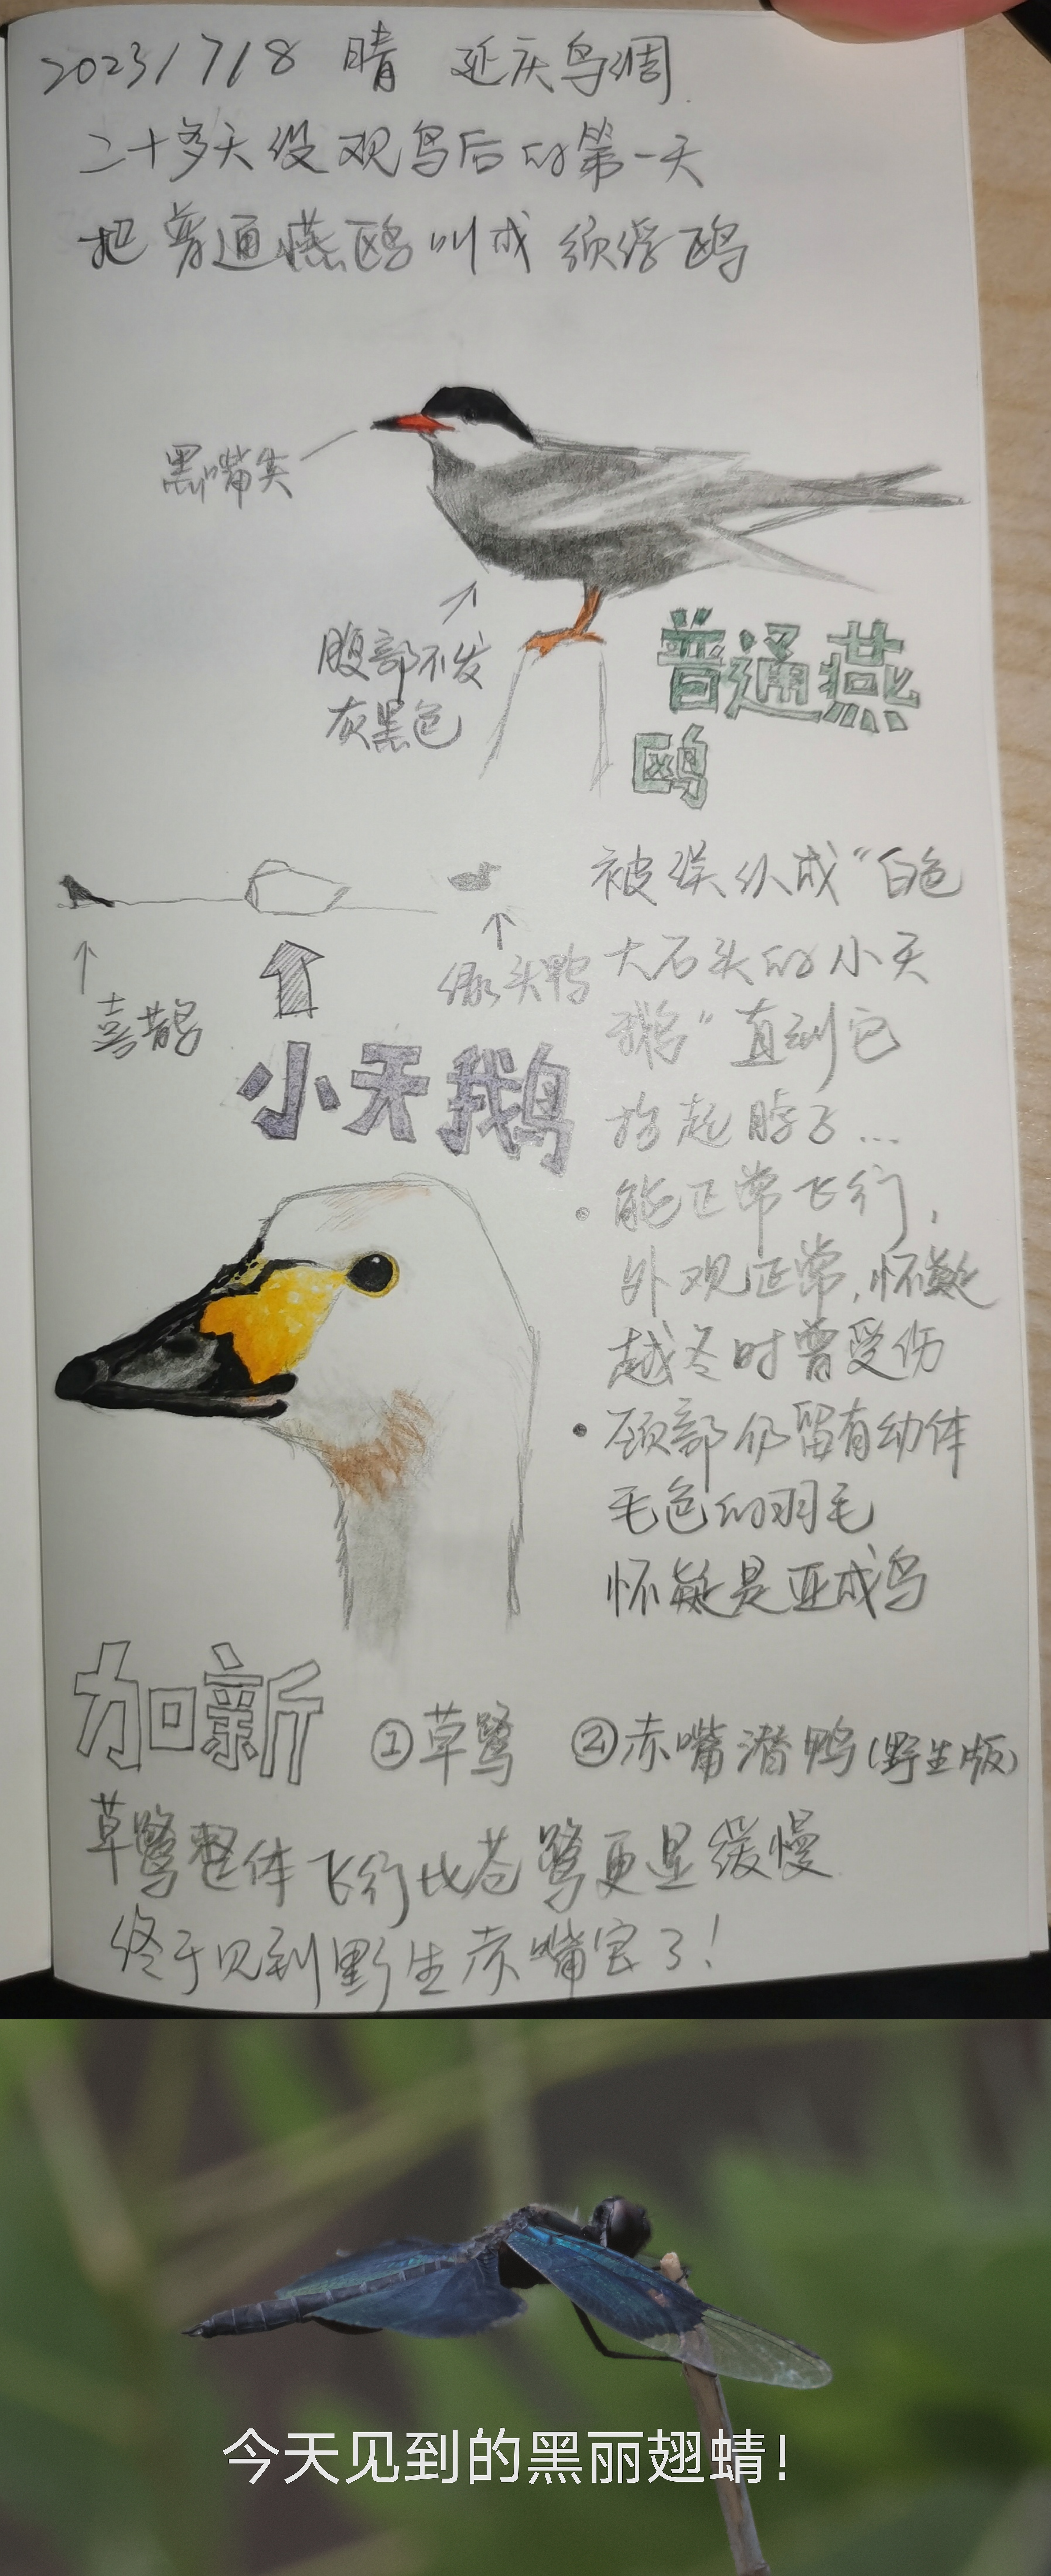 2023/7/8 晴 延庆鸟调
二十多天没观鸟后的第一天
把普通燕鸥叫成须浮鸥
黑嘴尖
腹部不发
灰黑色
普通燕
鸥
喜鹊
绿头鸭
小天鹅
被误认成“白色
大石头的小天
鹅”直到它
抬起脖子…
·能正常飞行，
外观正常，怀疑
越冬时曾受伤
·颈部仍留有幼体
毛色的羽毛
怀疑是亚成鸟
加新 ①草鹭 ②赤嘴潜鸭(野生版)
草鹭整体飞行比苍鹭更显缓慢
终于见到野生赤嘴宝了！
今天见到的黑丽翅蜻！